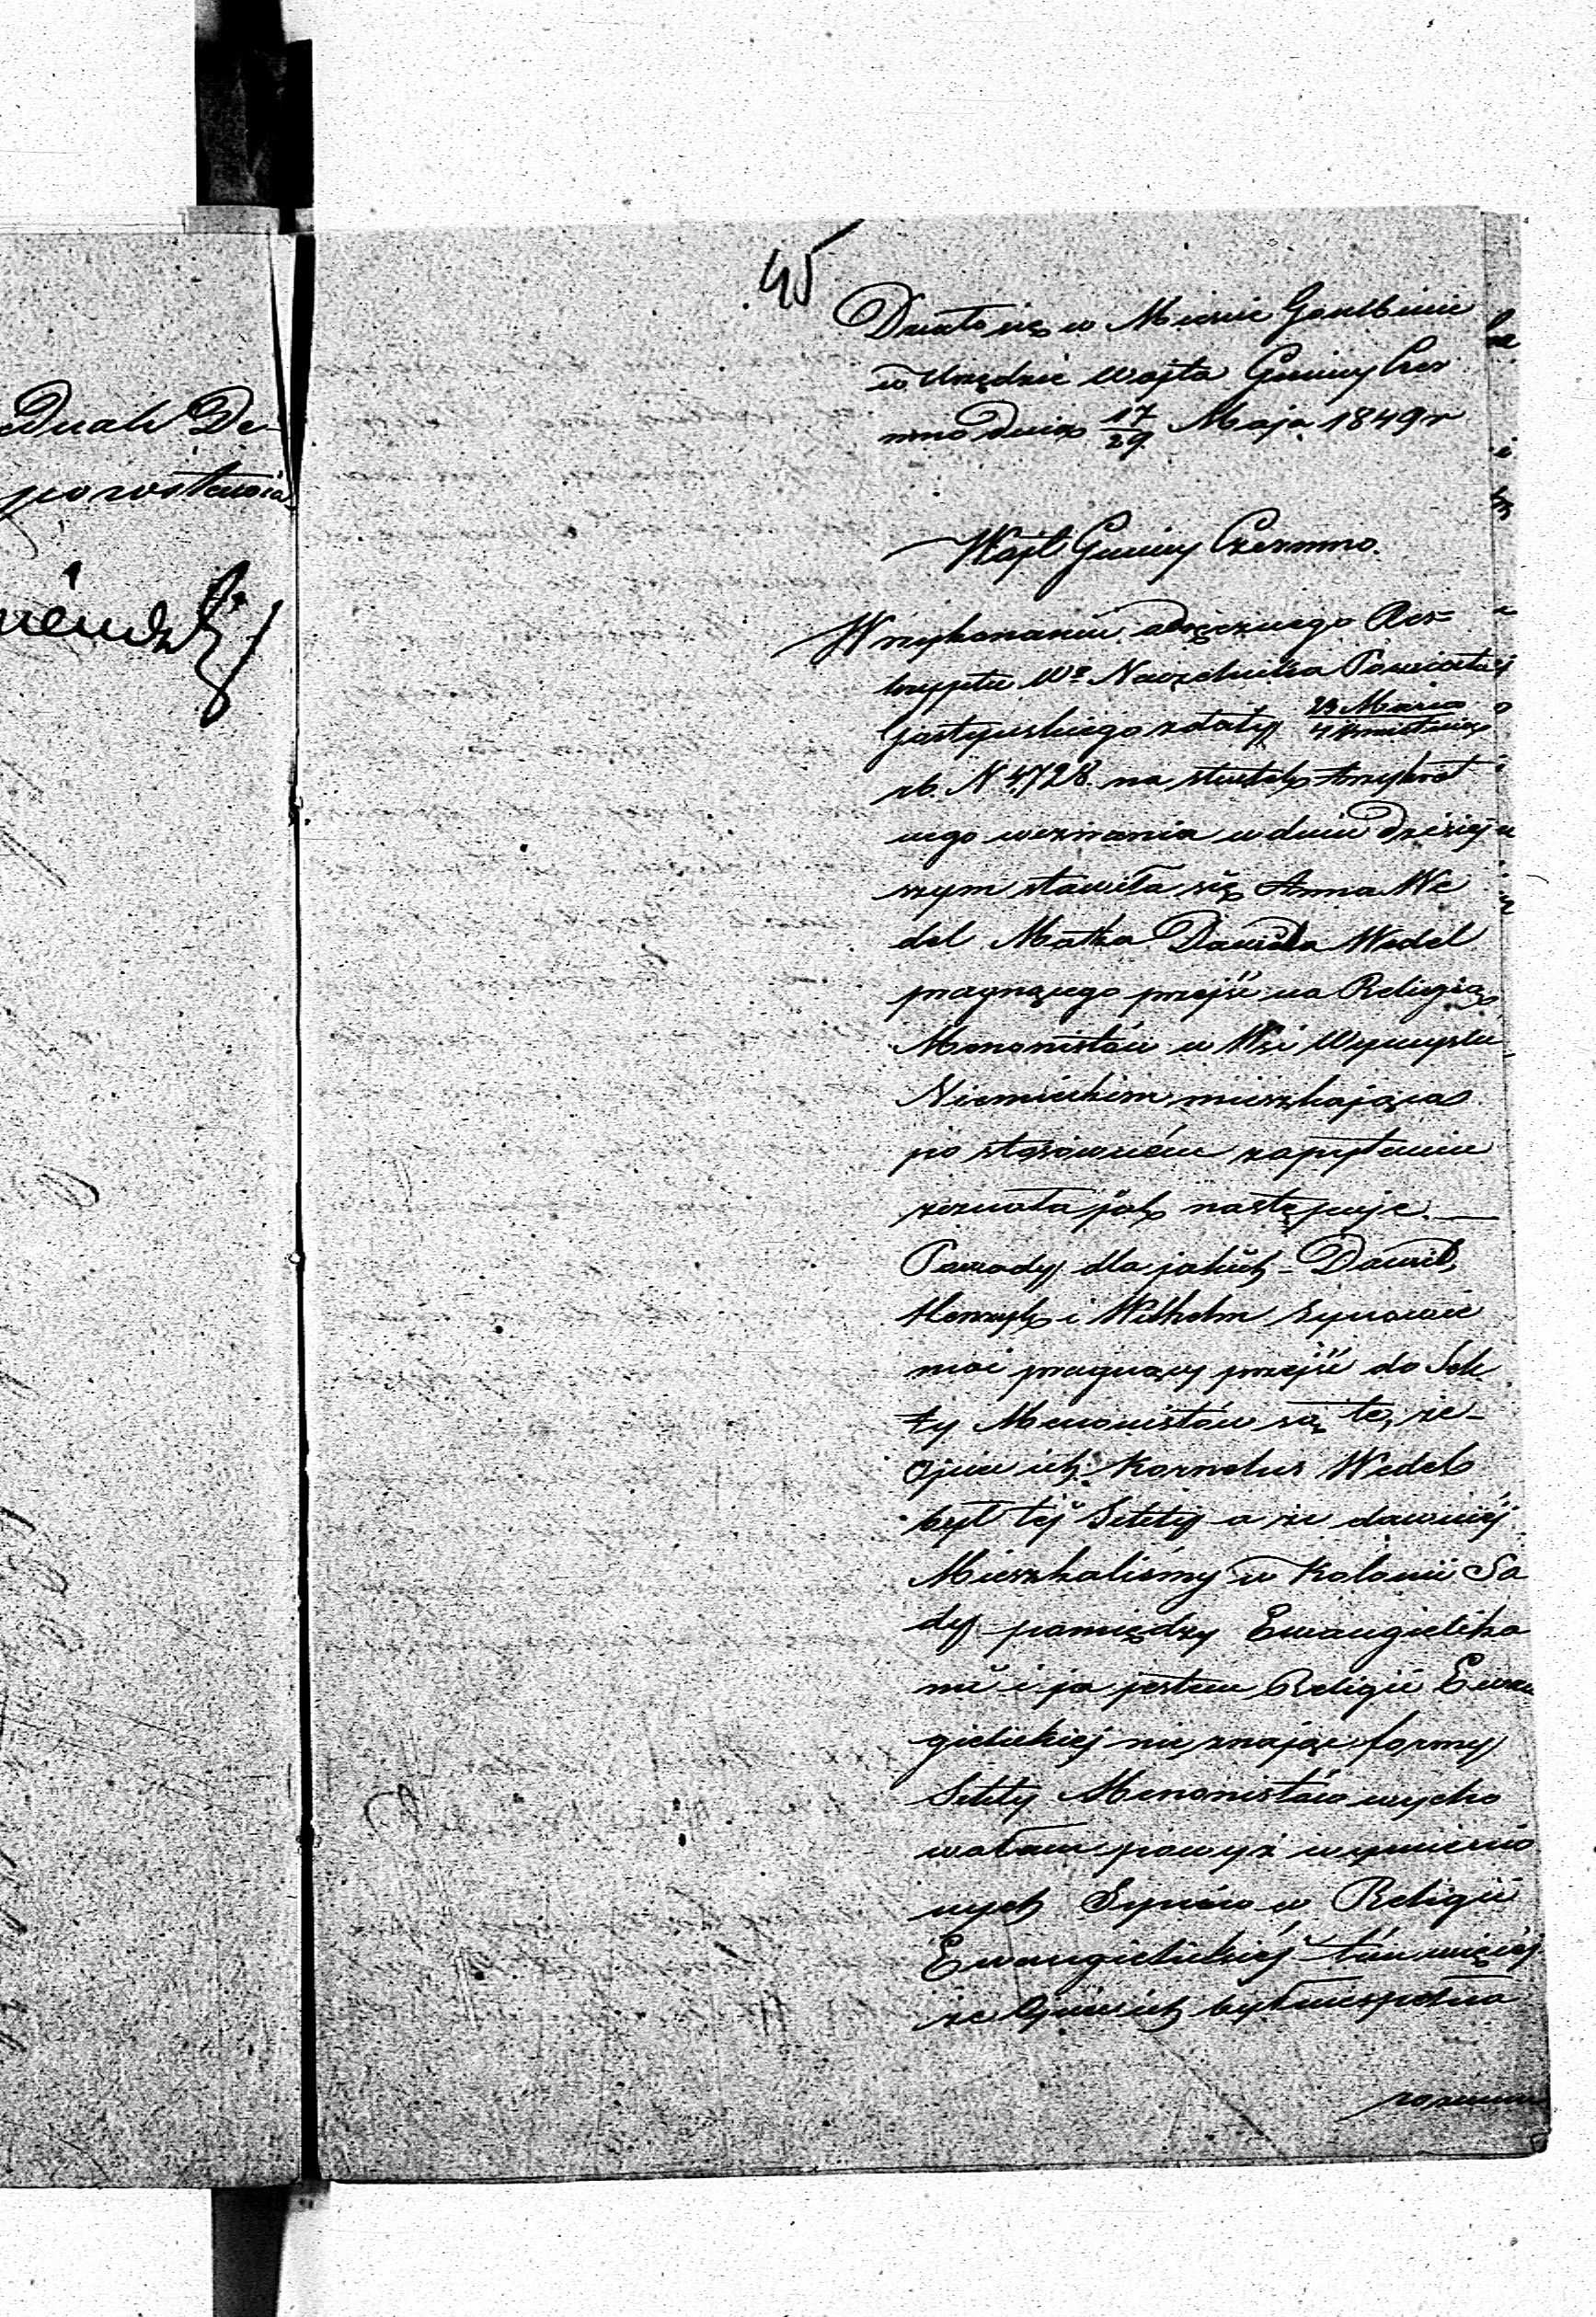 45
Działo się w Mieście Gombinie
w Urzędzie Wójta Gminy Czer
mno dnia 17/29 Maja 1849 r
Wójt Gminy Czermno.
W wykonaniu odręcznego Res-
kryptu Wo Naczelnika Powiatu
Gostyńskiego z daty 23 Marca / 4 Kwietnia
rb. N 4728. na skutek
nego wezwania w dniu dzisiej
szym stawiła się Anna We
del Matka Dawida Wedel
pragnącego przejść na Religią
Menonistów w Wsi Wymyślu
Niemieckim mieszkająca
po stosownem zapytaniu
zeznała jak następuje. —
Powody dla jakich Dawid,
Henryk i Wilhelm Synowie
moi pragnący przejść do Sek
ty Menonistów są te, że
Ojciec ich Kornelius Wedel
był tej Sekty a że dawniej
Mieszkaliśmy w Kolonii Sa
dy pomiędzy Ewangielika
mi i ja jestem Religii Ewan
gielickiej nie znając formy
Sekty Menonistów wycho
wałam powyż wymienio
nych Synów w Religii
Ewangielickiej tem więcej
że Ojciec ich był niespełna
rozumu
Dnak De-
pozostawia